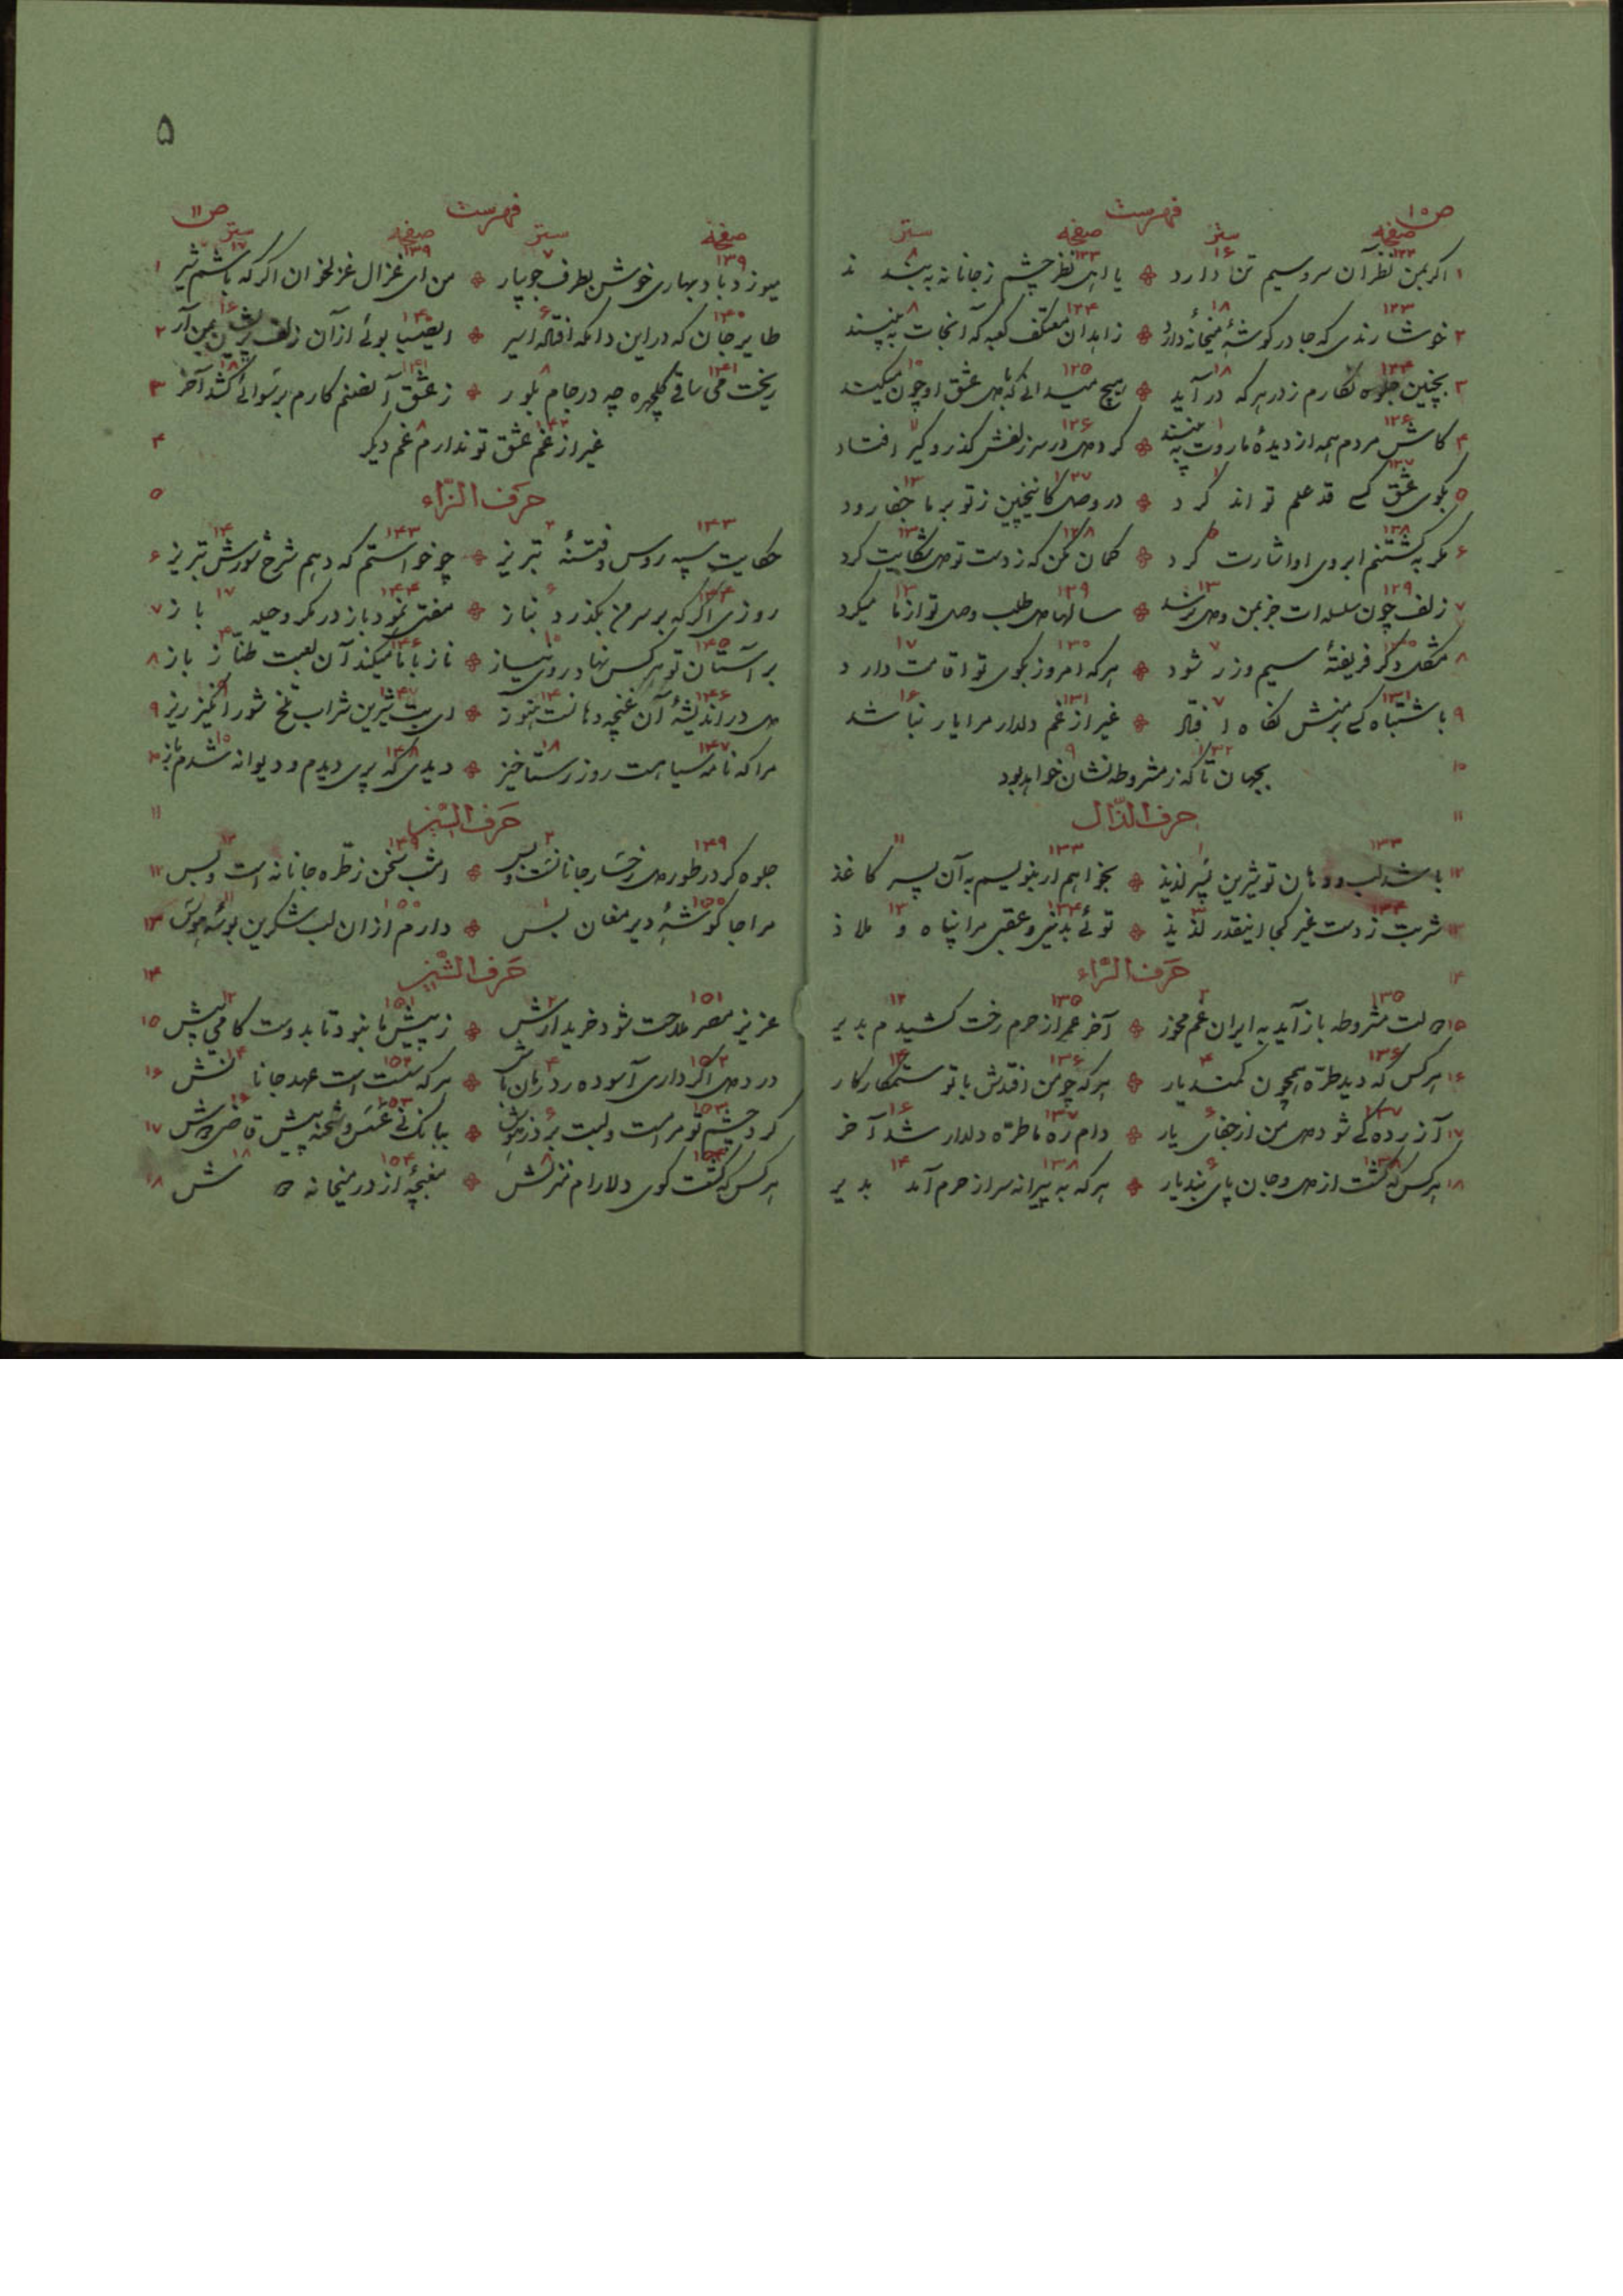 ص ۱۰ فهرست
صفحه سطر صفحه سطر
۱ اگر بمن نظر آن سرو سیم تن دارد ❖ یا اهل نظر چشم ز جانانه به بندند
۲ خوشا رندی که جا در گوشهٔ میخانهٔ دارد ❖ زاهدان معتکف کعبه که
۳ بچنین جلوه نگارم ز در هر که درآید ❖ هیچ میدانی که با دل عشق او چون میکند
۴ کاش مردم همه از دیدهٔ ما روت به بینند ❖ گر دل در سر زلفش گذر و گیر افتاد
۵ بکوی عشق کسی قد علم تواند کرد ❖ در وصل کاینچنین ز تو بر ما جفا رود
۶ مگر به کشتنم ابروی او اشارت کرد ❖ گمان مکن که ز دست تو دل شکایت کرد
۷ زلف چون سلسله ات جز بمن و دل نرسد ❖ سالها دل طلب وصل تو از ما میکرد
۸ مشکل دگر فریفتهٔ سیم و زر شود ❖ هر که امروز بکوی تو اقامت دارد
۹ باشتباه کسی بر منش نگاه افتاد ❖ غیر از غم دلدار مرا یار نباشد
۱۰ بجهان تا که ز مشروطه نشان خواهد بود
۱۱ حرف الذّال
۱۲ باشد لب و دهان تو شیرین پسر لذیذ ❖ بخواهم ار بنویسم به آن پسر کاغذ
۱۳ شربت ز دست غیر کجا اینقدر لذیذ ❖ توئی بدنیی و عقبی مرا پناه و ملاذ
۱۴ حرف الرّاء
۱۵ دولت مشروطه باز آید به ایران غم مخور ❖ آخر عمر از حرم رخت کشیدم بدیر
۱۶ هر کس که دید طرّه همچون کمند یار ❖ هر که چو من افتدش با تو ستمکار کار
۱۷ آزرده کی شود دل من از جفای یار ❖ دام ره ما طرّه دلدار شد آخر
۱۸ هر کس که گشت از دل و جان پای بند یار ❖ هر که به پیرانه سر از حرم آمد بدیر
۵
فهرست ص ۱۱
صفحه سطر صفحه سطر
۱ میوزد باد بهاری خوش بطرف جویبار ❖ من ای غزال غزلخوان اگر که باشم شیر
۲ طایر جان که در این دامگه افتاده اسیر ❖ ای صبا بوئی از آن زلف پریشان بمن آر
۳ ریخت می ساقی گلچهره چه در جام بلور ❖ ز عشق آن صنم کارم برسوائی کشد آخر
۴ غیر از غم عشق تو ندارم غم دیگر
۵ حرف الزّاء
۶ حکایت سپه روس و فتنهٔ تبریز ❖ چو خواستم که دهم شرح شورش تبریز
۷ روزی اگر که بر سر من بگذرد بناز ❖ مفتی نمود باز در مکر و حیله باز
۸ بر آستان تو هر کس نهاد روی نیاز ❖ ناز با ما میکند آن لعبت طنّاز باز
۹ دل در اندیشهٔ آن غنچه دهانست هنوز ❖ ای بت شیرین شراب تلخ شورانگیز ریز
۱۰ مرا که نامه سیاهست روز رستاخیز ❖ دیدی که پری دیدم و دیوانه شدم باز
۱۱ حرف السّین
۱۲ جلوه گر در طور دل رخسار جانانست و بس ❖ امشب سخن ز طرّه جانانه است و بس
۱۳ مرا جا گوشهٔ دیر مغان بس ❖ دارم از ان لب شکرین بوسهٔ هوس
۱۴ حرف الشّین
۱۵ عزیز مصر ملاحت شود خریدارش ❖ ز پیش ما نبود تا بدوست گامی بیش
۱۶ درد دل اگر داری آسوده ز درمان باش ❖ هر که سست است عهد جانانش
۱۷ گر دو چشم تو مراست و لبت برد ز هوش ❖ ببانک نی عسس و شحنه پیش قاضی دوش
۱۸ هر کس که گفت کوی دلارام منزلش ❖ مغبچهٔ از در میخانه دوش